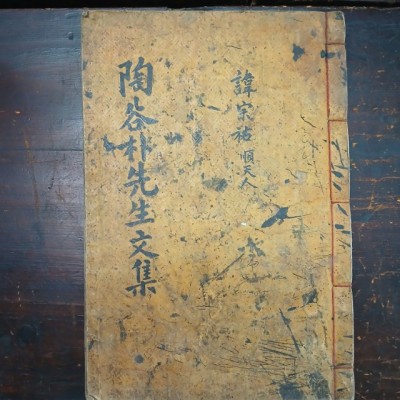 諱宗祐順天人
陶谷朴先生文集